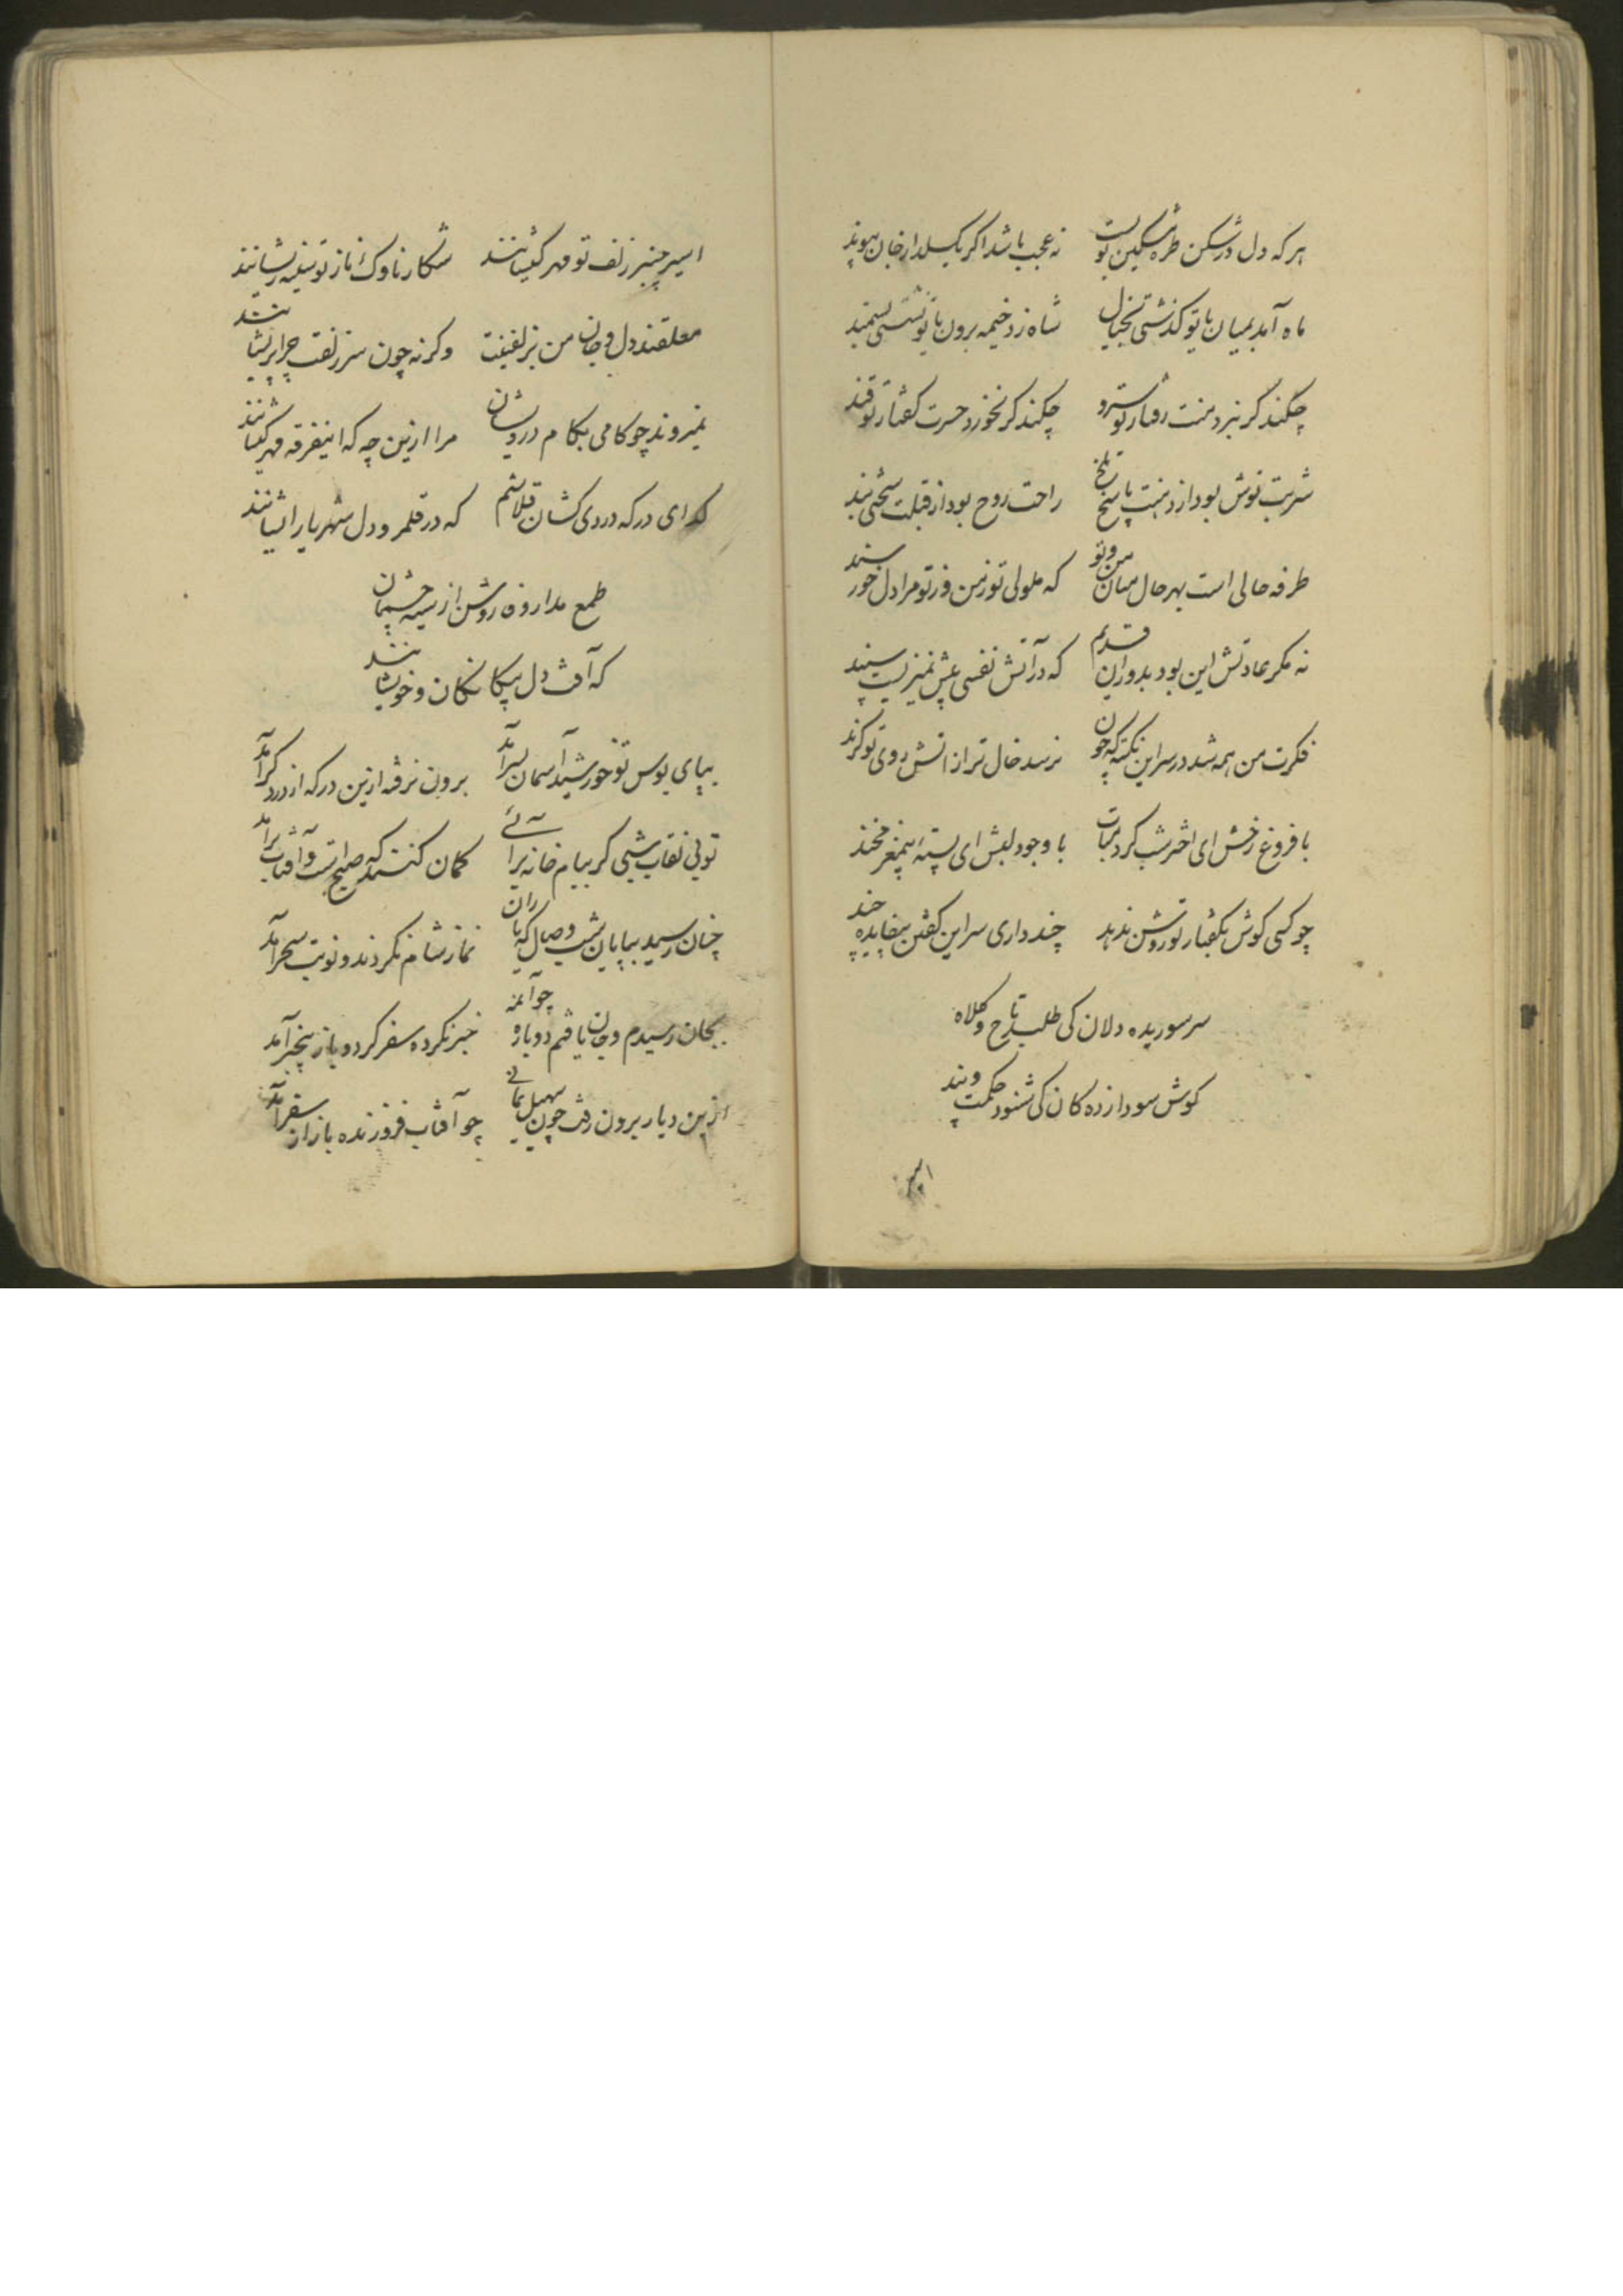 هر که دل در شکن طره مشکین تو بست نه عجب باشد اگر بگسلد از جان پیوند
ماه آمد بمیان یا تو گذشتی بخیال شاه زد خیمه برون یا تو نشستی بسمند
چکند گر نبرد منت رفتار تو سرو چکند گر نخورد حسرت گفتار تو قند
شربت نوش بود از دهنت پاسخ تلخ راحت روح بود از قبلت سختی بند
طرفه حالی است بهر حال میان من و تو که ملولی تو ز من وز تو مرا دل خورسند
نه مگر عادتش این بود بدوران قدیم که در آتش نفسی بیش نمیزیست سپند
فکرت من همه شد در سر این نکته که چون نرسد خال ترا ز اتش روی تو گزند
با فروغ رخش ای اختر شب گرد متاب با وجود لبش ای پسته بیمغز مخند
چو کسی گوش بگفتار تو روشن ندهد چند داری سر این گفتن بیفایده چند
سر سوریده دلان کی طلبد تاج و کلاه
گوش سودازده کان کی شنود حکمت و پند
اسیر
اسیر چنبر زلف تو مهر کیشانند شکار ناوک ناز تو سینه ریشانند
معلقند دل و جان من بزلفینت وگرنه چون سر زلفت چرا پریشانند
نمیروند چو کامی بکام درویشان مرا ازین چه که اینفرقه مهر کیشانند
گدای درگه دردی کشان قلاشم که در قلمرو دل شهریار ایشانند
طمع مدار وفا روشن از سیه چشمان
که آفت دل بیگانگان و خویشانند
بپای بوس تو خورشید آسمان بسر آمد برون نرفه ازین در که از در دگر آمد
توئی نقاب شبی گر ببام خانه برآئی گمان کنند که صبح است و آفتاب برآمد
چنان رسید بپایان شب وصال که یاران نماز شام نکردند و نوبت سحر آمد
بجان رسیدم و جان یافتم دوباره چو آنمه خبر نکرده سفر کرد و باز بیخبر آمد
ازین دیار برون رفت چون سهیل یمانی چو آفتاب فروزنده باز از سفر آمد